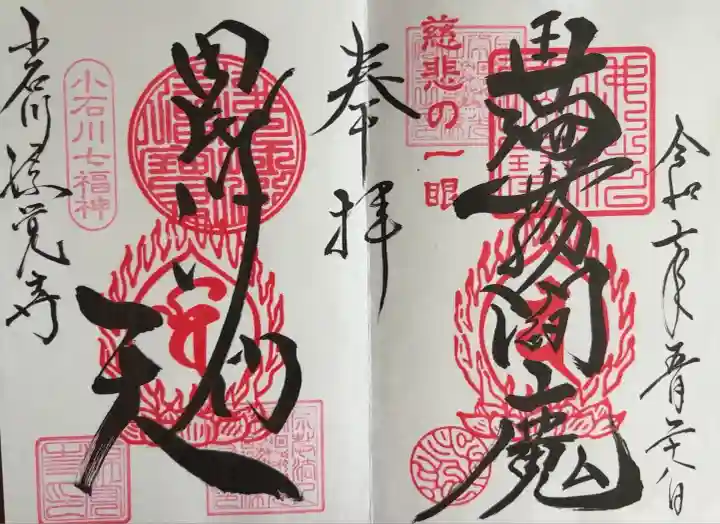 令和六年五月二十八日
蒟蒻閻魔
慈悲の一眼
奉拝
毘沙門天
小石川七福神
小石川源覚寺